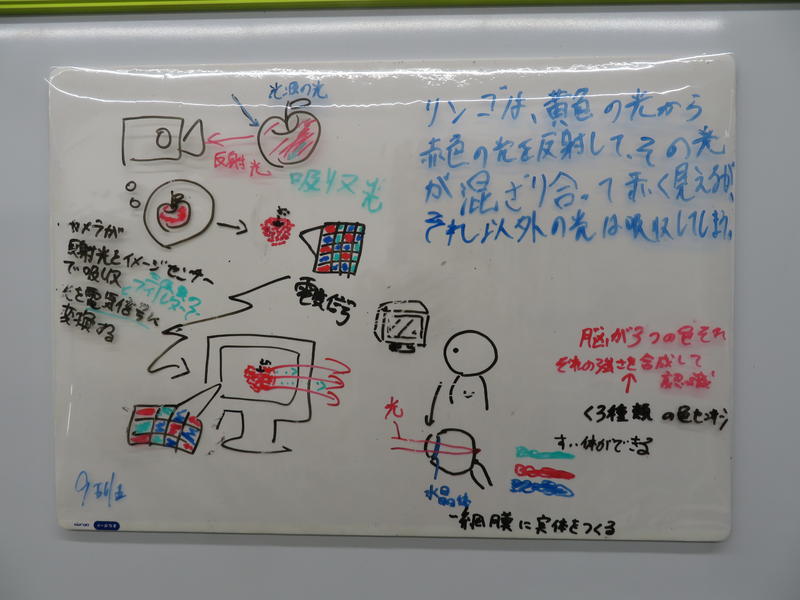 リンゴは、黄色の光から
赤色の光を反射して、その光
が混ざり合って赤く見えるが、
それ以外の光は吸収してしまう。
反射光
吸収光
カメラが
反射光をイメージセンサー
で吸収
光を電気信号に
変換する
電気信号
脳が3つの色それ
ぞれの強さを合成して
認識
3種類の色
すい体ができる
光
水晶体
網膜に実体をつくる
9班